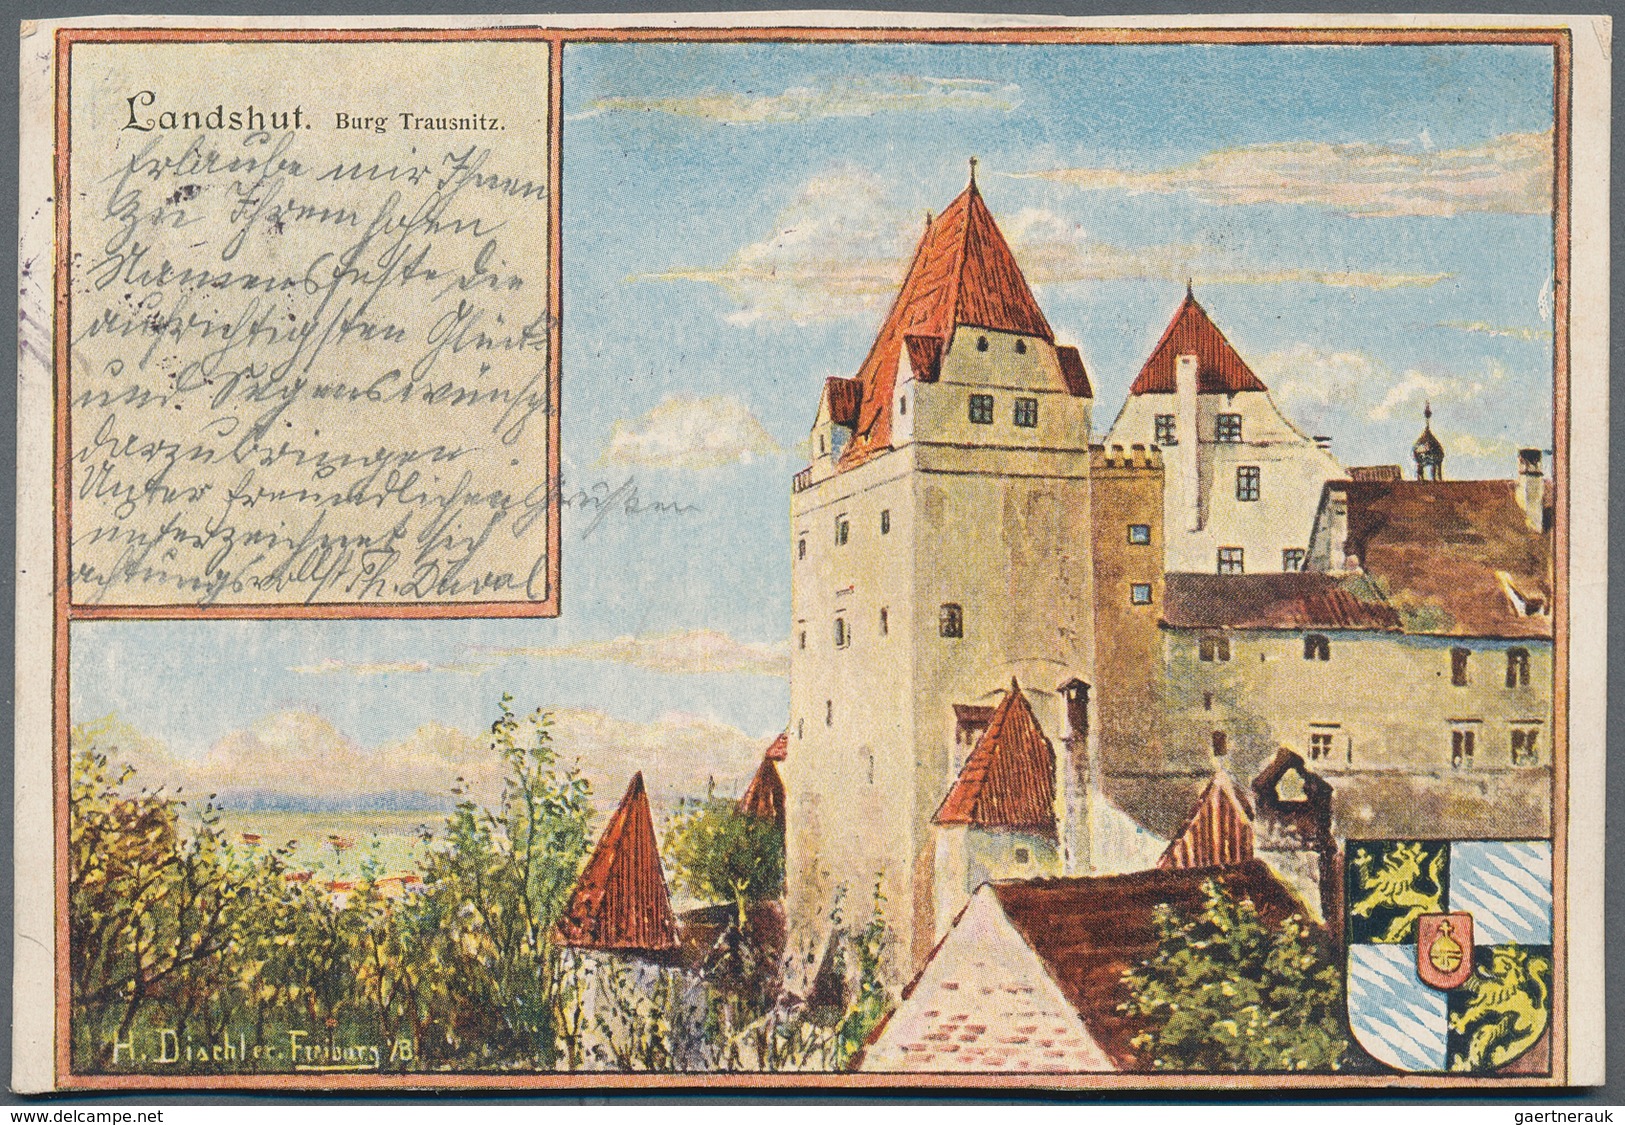 Landshut. Burg Trausnitz.
Erlaube mir Ihnen
zu Ihrem hohen
Namensfeste die
aufrichtigsten Glück-
und Segenswünsche
darzubringen.
Unter freundlichen Grüßen
unterzeichnet sich
achtungsvollst Th. Duval
H. Dischler. Freiburg i/B.
www.delcampe.net
gaertnerauk